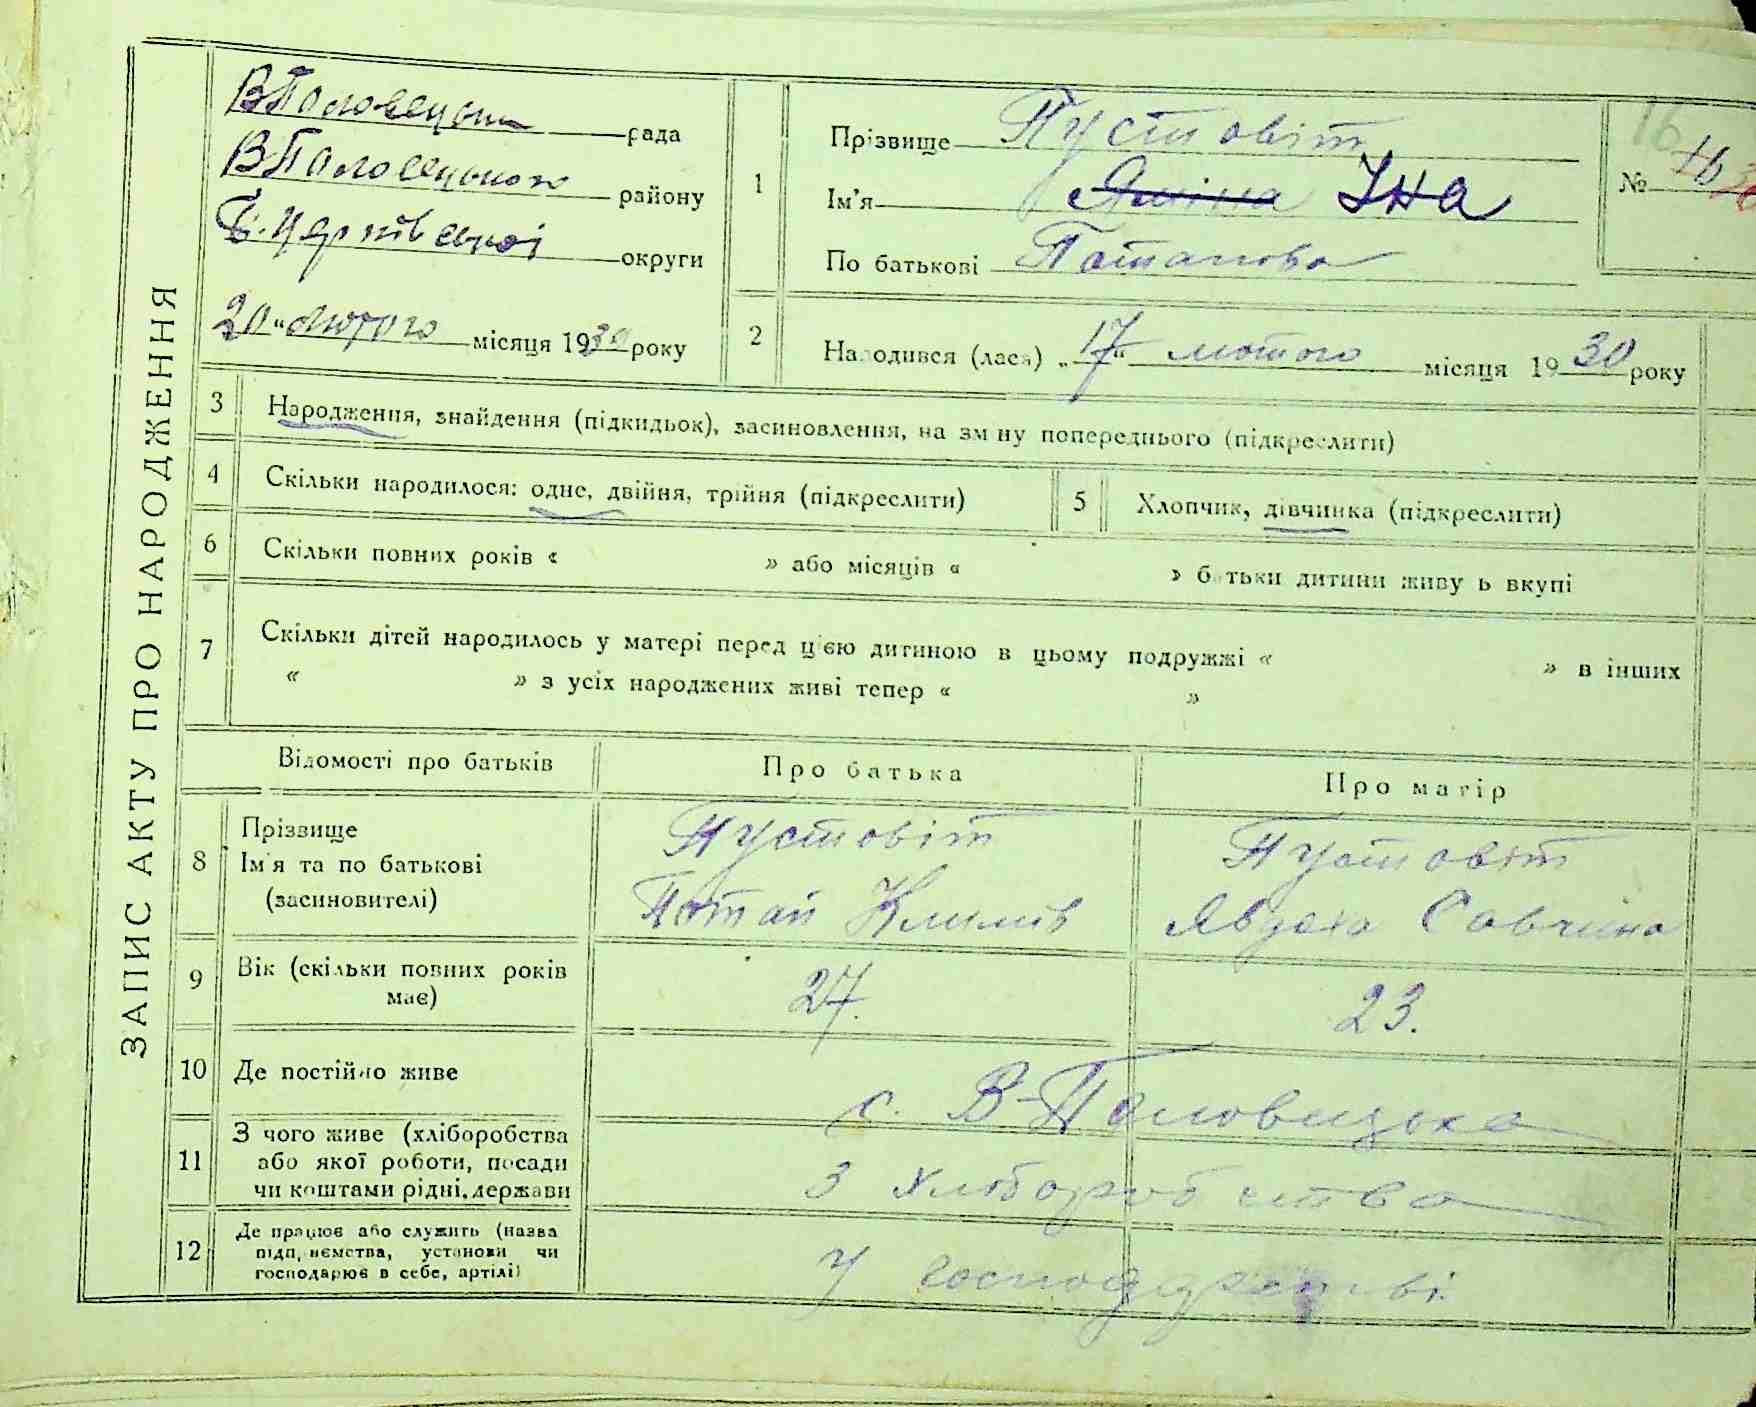 ЗАПИС АКТУ ПРО НАРОДЖЕННЯ
ВПоловецька рада
ВПоловецького району
Б.Церківської округи
20 "лютого місяця 1930 року
1
Прізвище Пустовіт
Ім'я Яніна ІНа
По батькові Потапова
№ 16
2
Народився (лася) „17" лютого місяця 1930 року
3 Народження, знайдення (підкидьок), засиновлення, на зміну попереднього (підкреслити)
4 Скільки народилося: одне, двійня, трійня (підкреслити)
5 Хлопчик, дівчинка (підкреслити)
6 Скільки повних років « » або місяців « » батьки дитини живуть вкупі
7 Скільки дітей народилось у матері перед цією дитиною в цьому подружжі « » в інших
« » з усіх народжених живі тепер « »
Відомості про батьків Про батька Про матір
8 Прізвище
Ім'я та по батькові
(засиновителі)
Пустовіт
Потап Климів
Пустовіт
Явдоха Савчина
9 Вік (скільки повних років має) 27. 23.
10 Де постійно живе с. В-Половецька
11 З чого живе (хліборобства
або якої роботи, посади
чи коштами рідні, держави
З хліборобства
12 Де працює або служить (назва
підприємства, установи чи
господарює в себе, артілі)
У господарстві